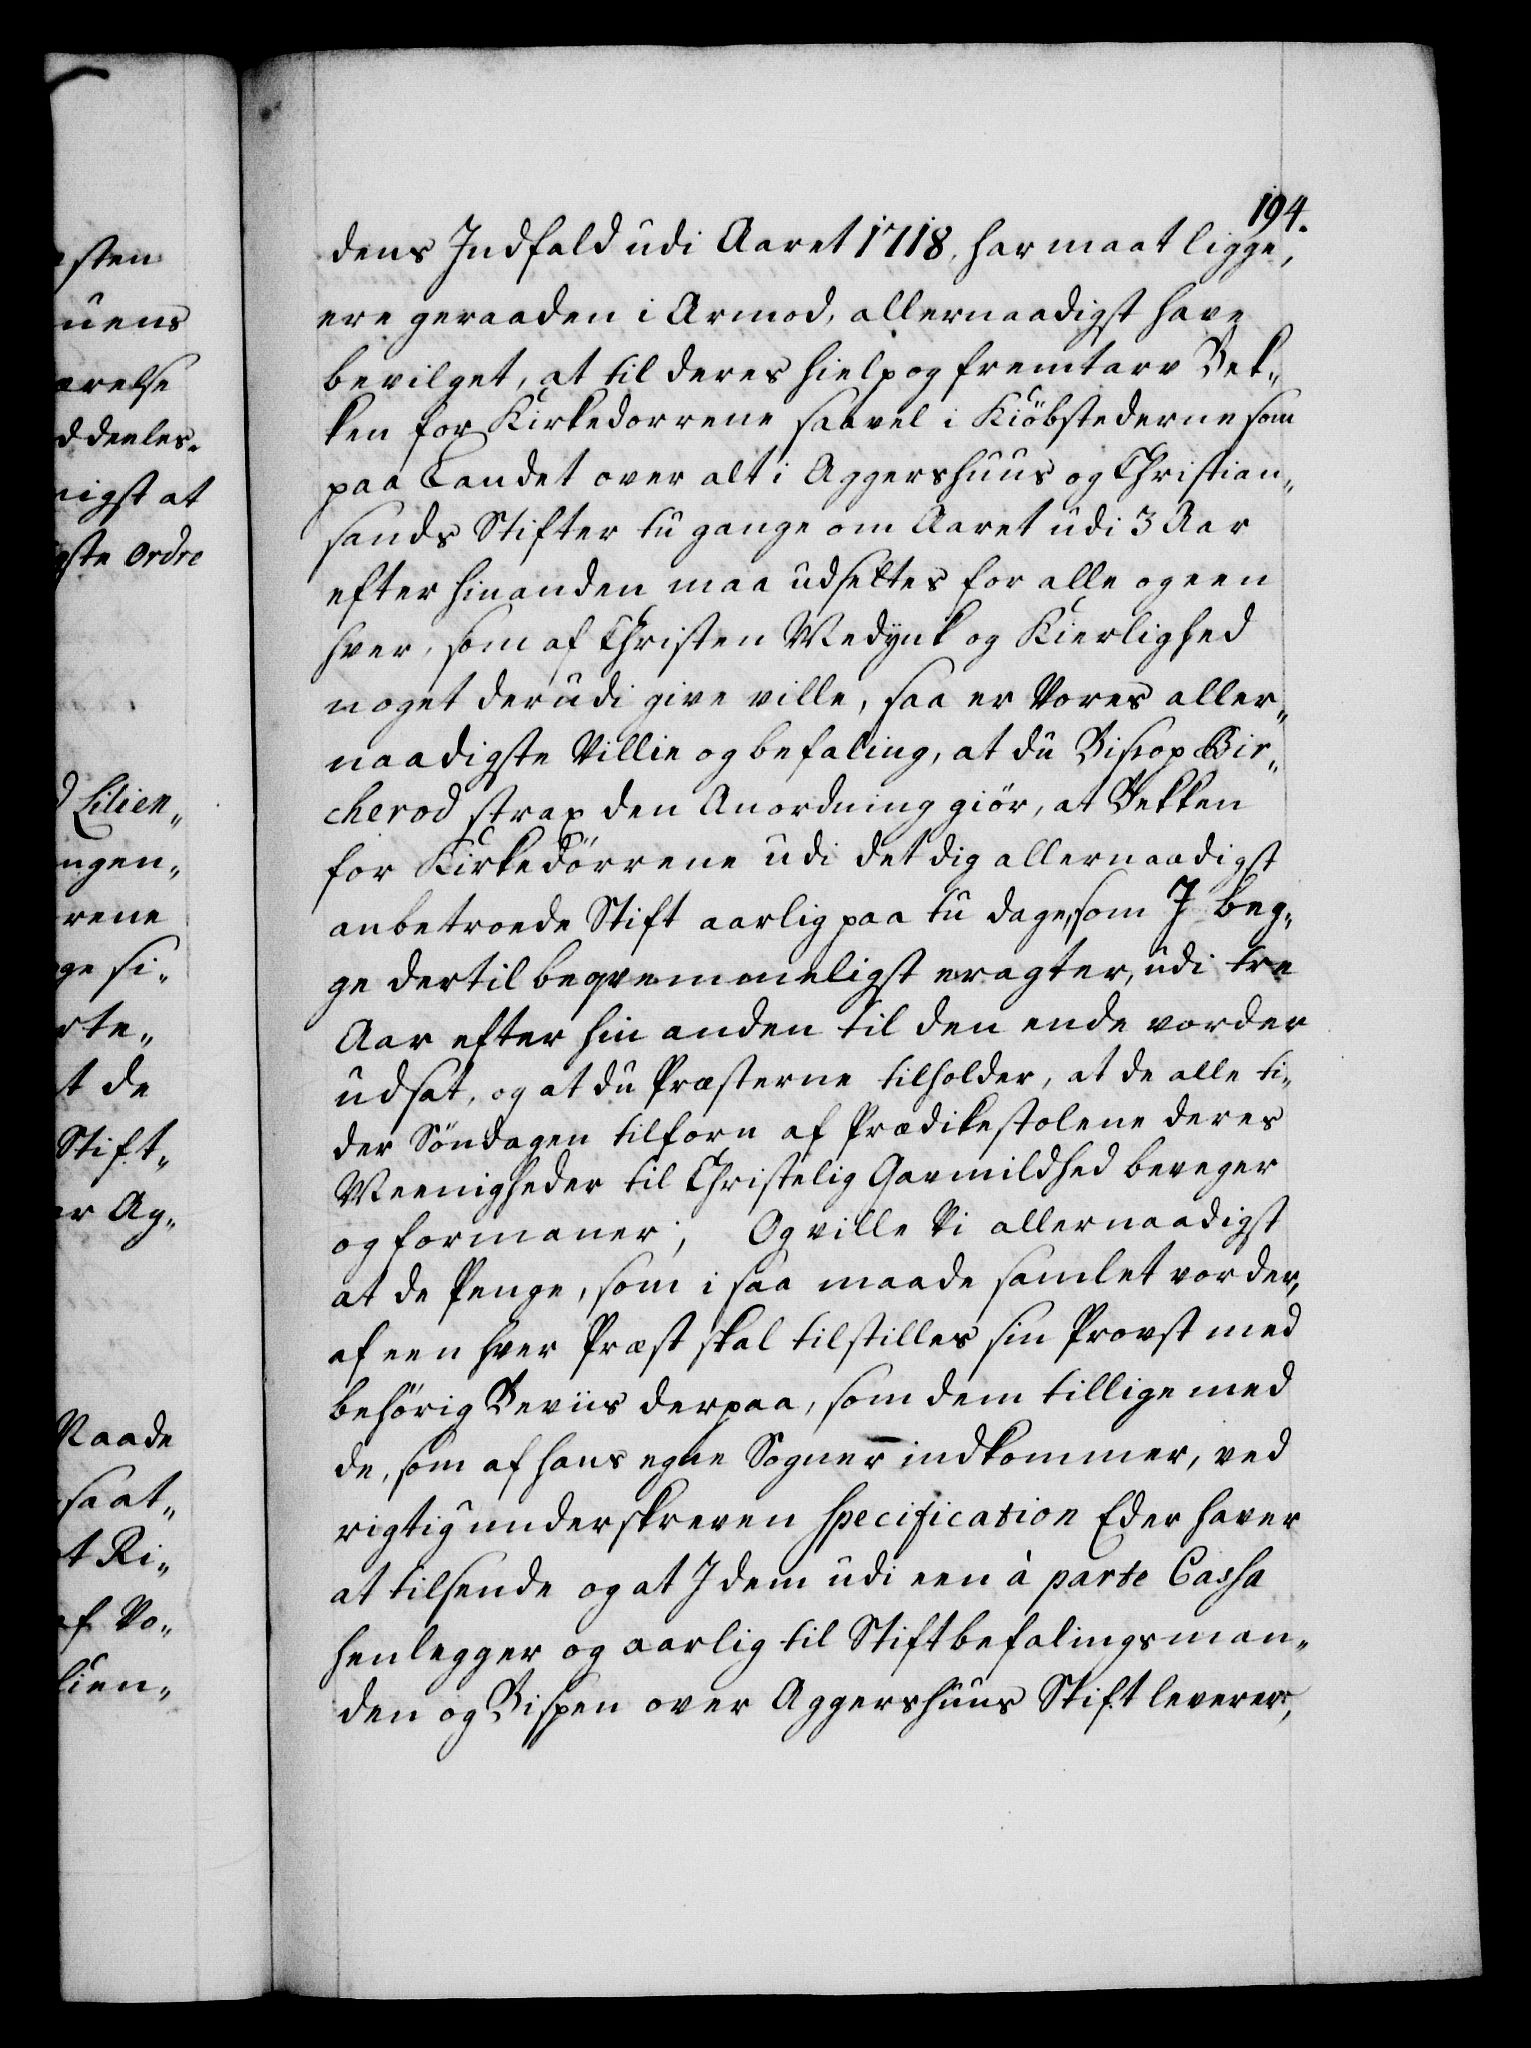 194.
dens Indfald udi Aaret 1718, har maat ligge,
ere geraaden i Armod, allernaadigst have
bevilget, at til deres hielp og fremtarv Bek„
ken for Kirkedorrene saavel i Kiöbstederne som
paa Landet over alt i Aggershuus og Christian„
sands Stifter tu gange om Aaret udi 3 Aar
efter hinanden maa udsettes for alle og een
hver, som af Christen Medynk og Kierlighed
noget derudi give ville, saa er Vores aller„
naadigste Villie og befaling, at du Biscop Bir„
cherod strax den Anordning giör, at Bekken
for Kirkedörrene udi det dig allernaadigst
anbetroede Stift aarlig paa tu dage, som I beg„
ge dertil beqvemmeligst eragter, udi tre
Aar efter hin anden til den ende vorder
udsat, og at du Præsterne tilholder, at de alle ti„
der Söndagen tilforn af Prædikestolene deres
Meenigheder til Christelig Gavmildhed beveger
og formaner; Og ville Vi allernaadigst
at de Penge, som i saa maade samlet vorder,
af een hver Præst skal tilstilles sin Provst med
behörig Beviis derpaa, som dem tillige med
de, som af hans egne Sogner indkommer, ved
rigtig underskreven Specification Eder haver
at tilsende og at I dem udi een à parte Cassa
henlegger og aarlig til Stiftbefalingsman„
den og Bispen over Aggershuus Stift leverer,
esten
uens
ærelse
d deeles„
nigst at
gste Ordre
d Lilien„
ngen„
rene
ge si„
rte„
t de
Stift„
er Ag„
Naade
saat„
t Ri„
af Vo„
lien„